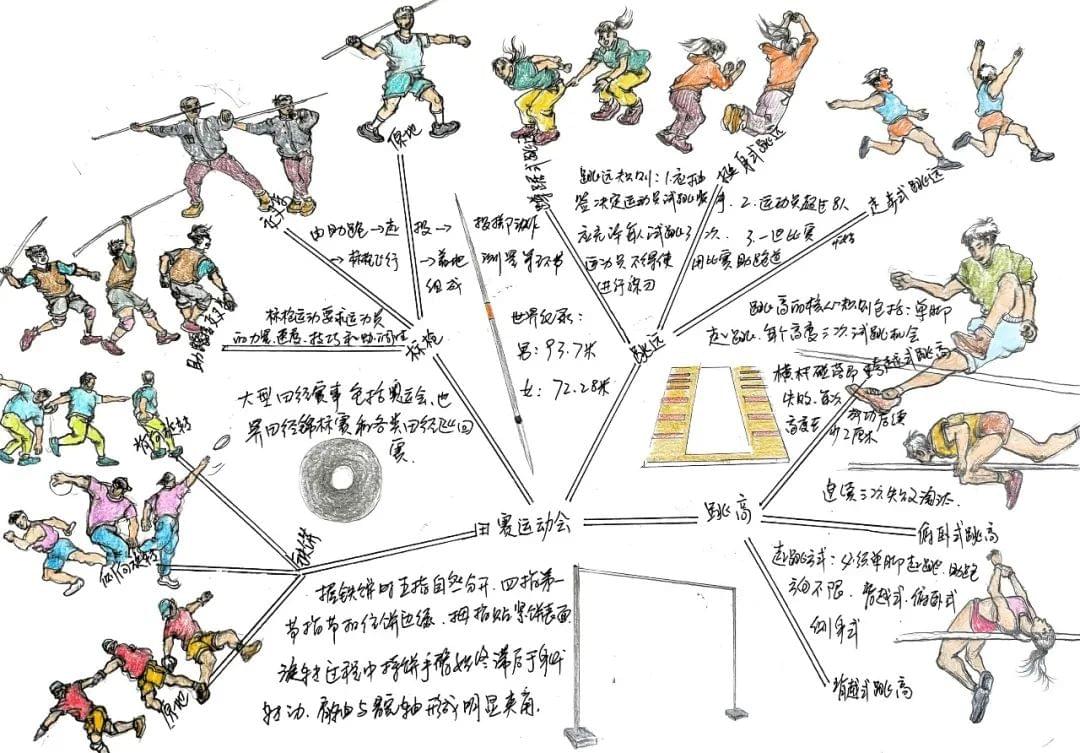 原地
跳远规则：1.应抽
签决定运动员试跳顺序。2.运动员超过8人
应允许每人试跳3次。3.一旦比赛
运动员不得使用比赛助跑道
进行练习
蹲踞式跳远
挺身式跳远
走步式跳远
由助跑→起投→投掷动作
→标枪飞行→落地测量等环节
组成
标枪运动要求运动员
的力量、速度、技巧和协调性
标枪
世界纪录：
男：93.7米
女：72.28米
跳远
大型田径赛事包括奥运会、世
界田径锦标赛和各类田径巡回
赛
跳高的核心规则包括：单脚
起跳、每个高度三次试跳机会
横杆碰落即
失败、每次
高度
2厘米
跨越式跳高
连续三次失败淘汰
田赛运动会
跳高
俯卧式跳高
起跳方式：必须单脚起跳、助跑
方向不限、背越式、俯卧式
侧身式
背越式跳高
背向旋转
侧向旋转
原地
握铁饼时五指自然分开、四指第一
节指节扣住饼边缘、拇指贴紧饼表面
旋转过程中持饼手臂始终滞后于身体
转动、肩轴与髋轴形成明显夹角